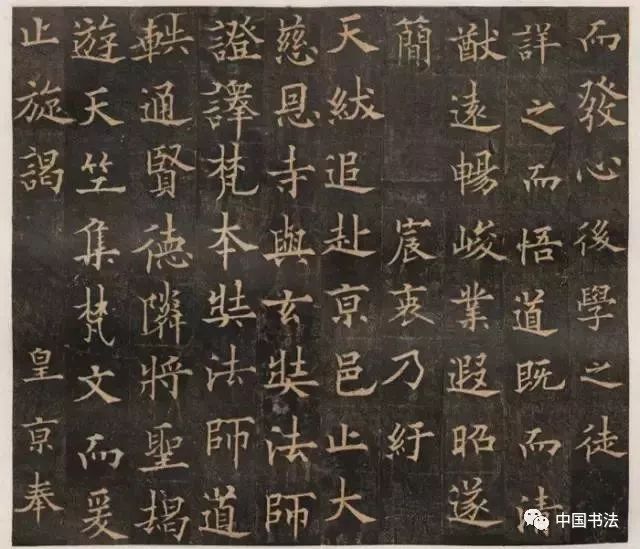 而發心後學之徒
詳之而悟道既而清
猷遠暢峻業遐昭遂
簡 宸衷乃紆
天紱追赴亰邑止大
慈恩寺與玄奘法師
證譯梵本奘法師道
軼通賢德隣將聖揭
遊天竺集梵文而爰
止旋謁 皇亰奉
中国书法